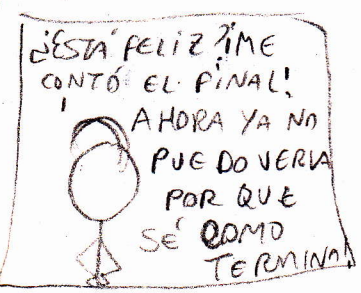 ¿ESTÁ FELIZ? ¡ME
CONTÓ EL FINAL!
AHORA YA NO
PUEDO VERLA
POR QUE
SÉ COMO
TERMINA!